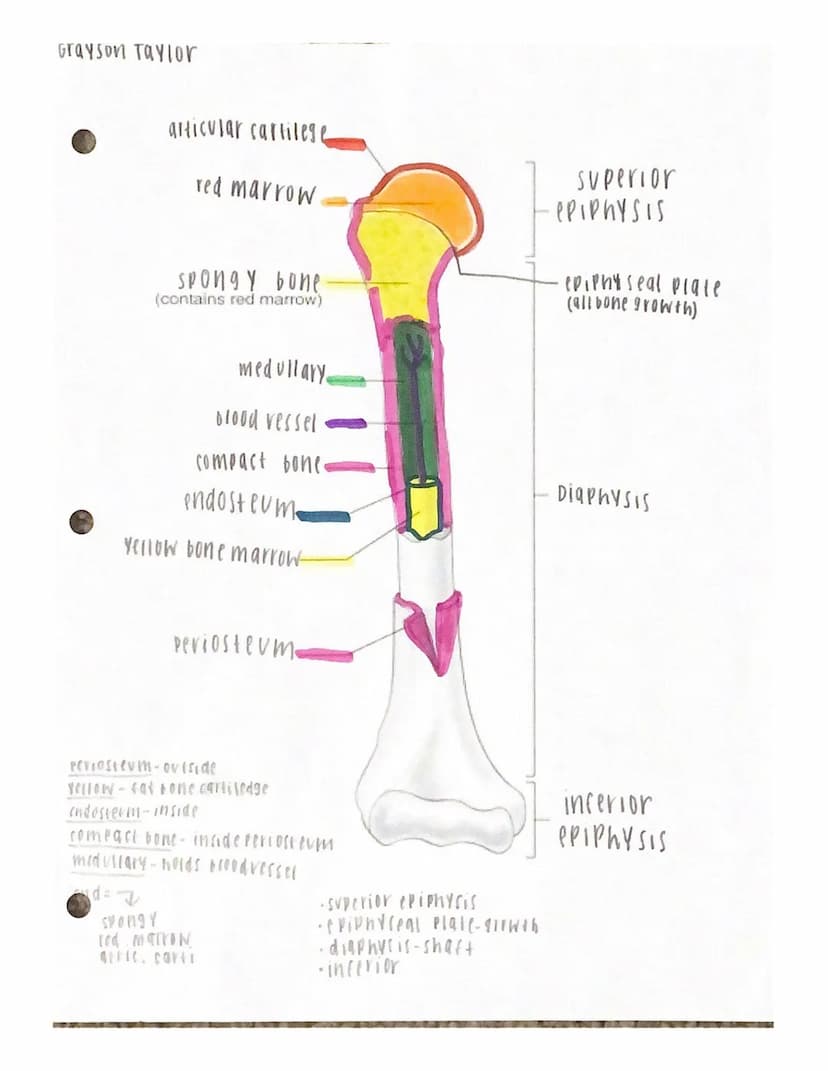 Grayson Taylor
articular cartilege
red marrow
spongy bone
(contains red marrow)
medullary
blood vessel
compact bone
endosteum
yellow bone marrow
periosteum
superior
epiphysis
epiphyseal plate
(all bone growth)
Diaphysis
inferior
epiphysis
periosteum - outside
yellow - fat bone cartiledge
endosteum - inside
compact bone - inside periosteum
medullary - holds blood vessel
spongy
red marrow
artic. carti
• superior epiphysis
• epiphyseal plate - growth
• diaphysis - shaft
• inferior